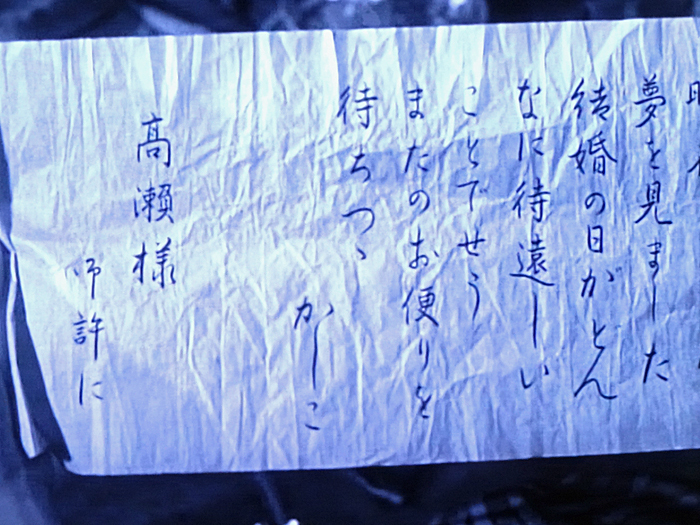 夢を見ました
結婚の日がどん
なに待遠しい
ことでせう
またのお便りを
待ちつゝ
かしこ
高瀬様
御許に